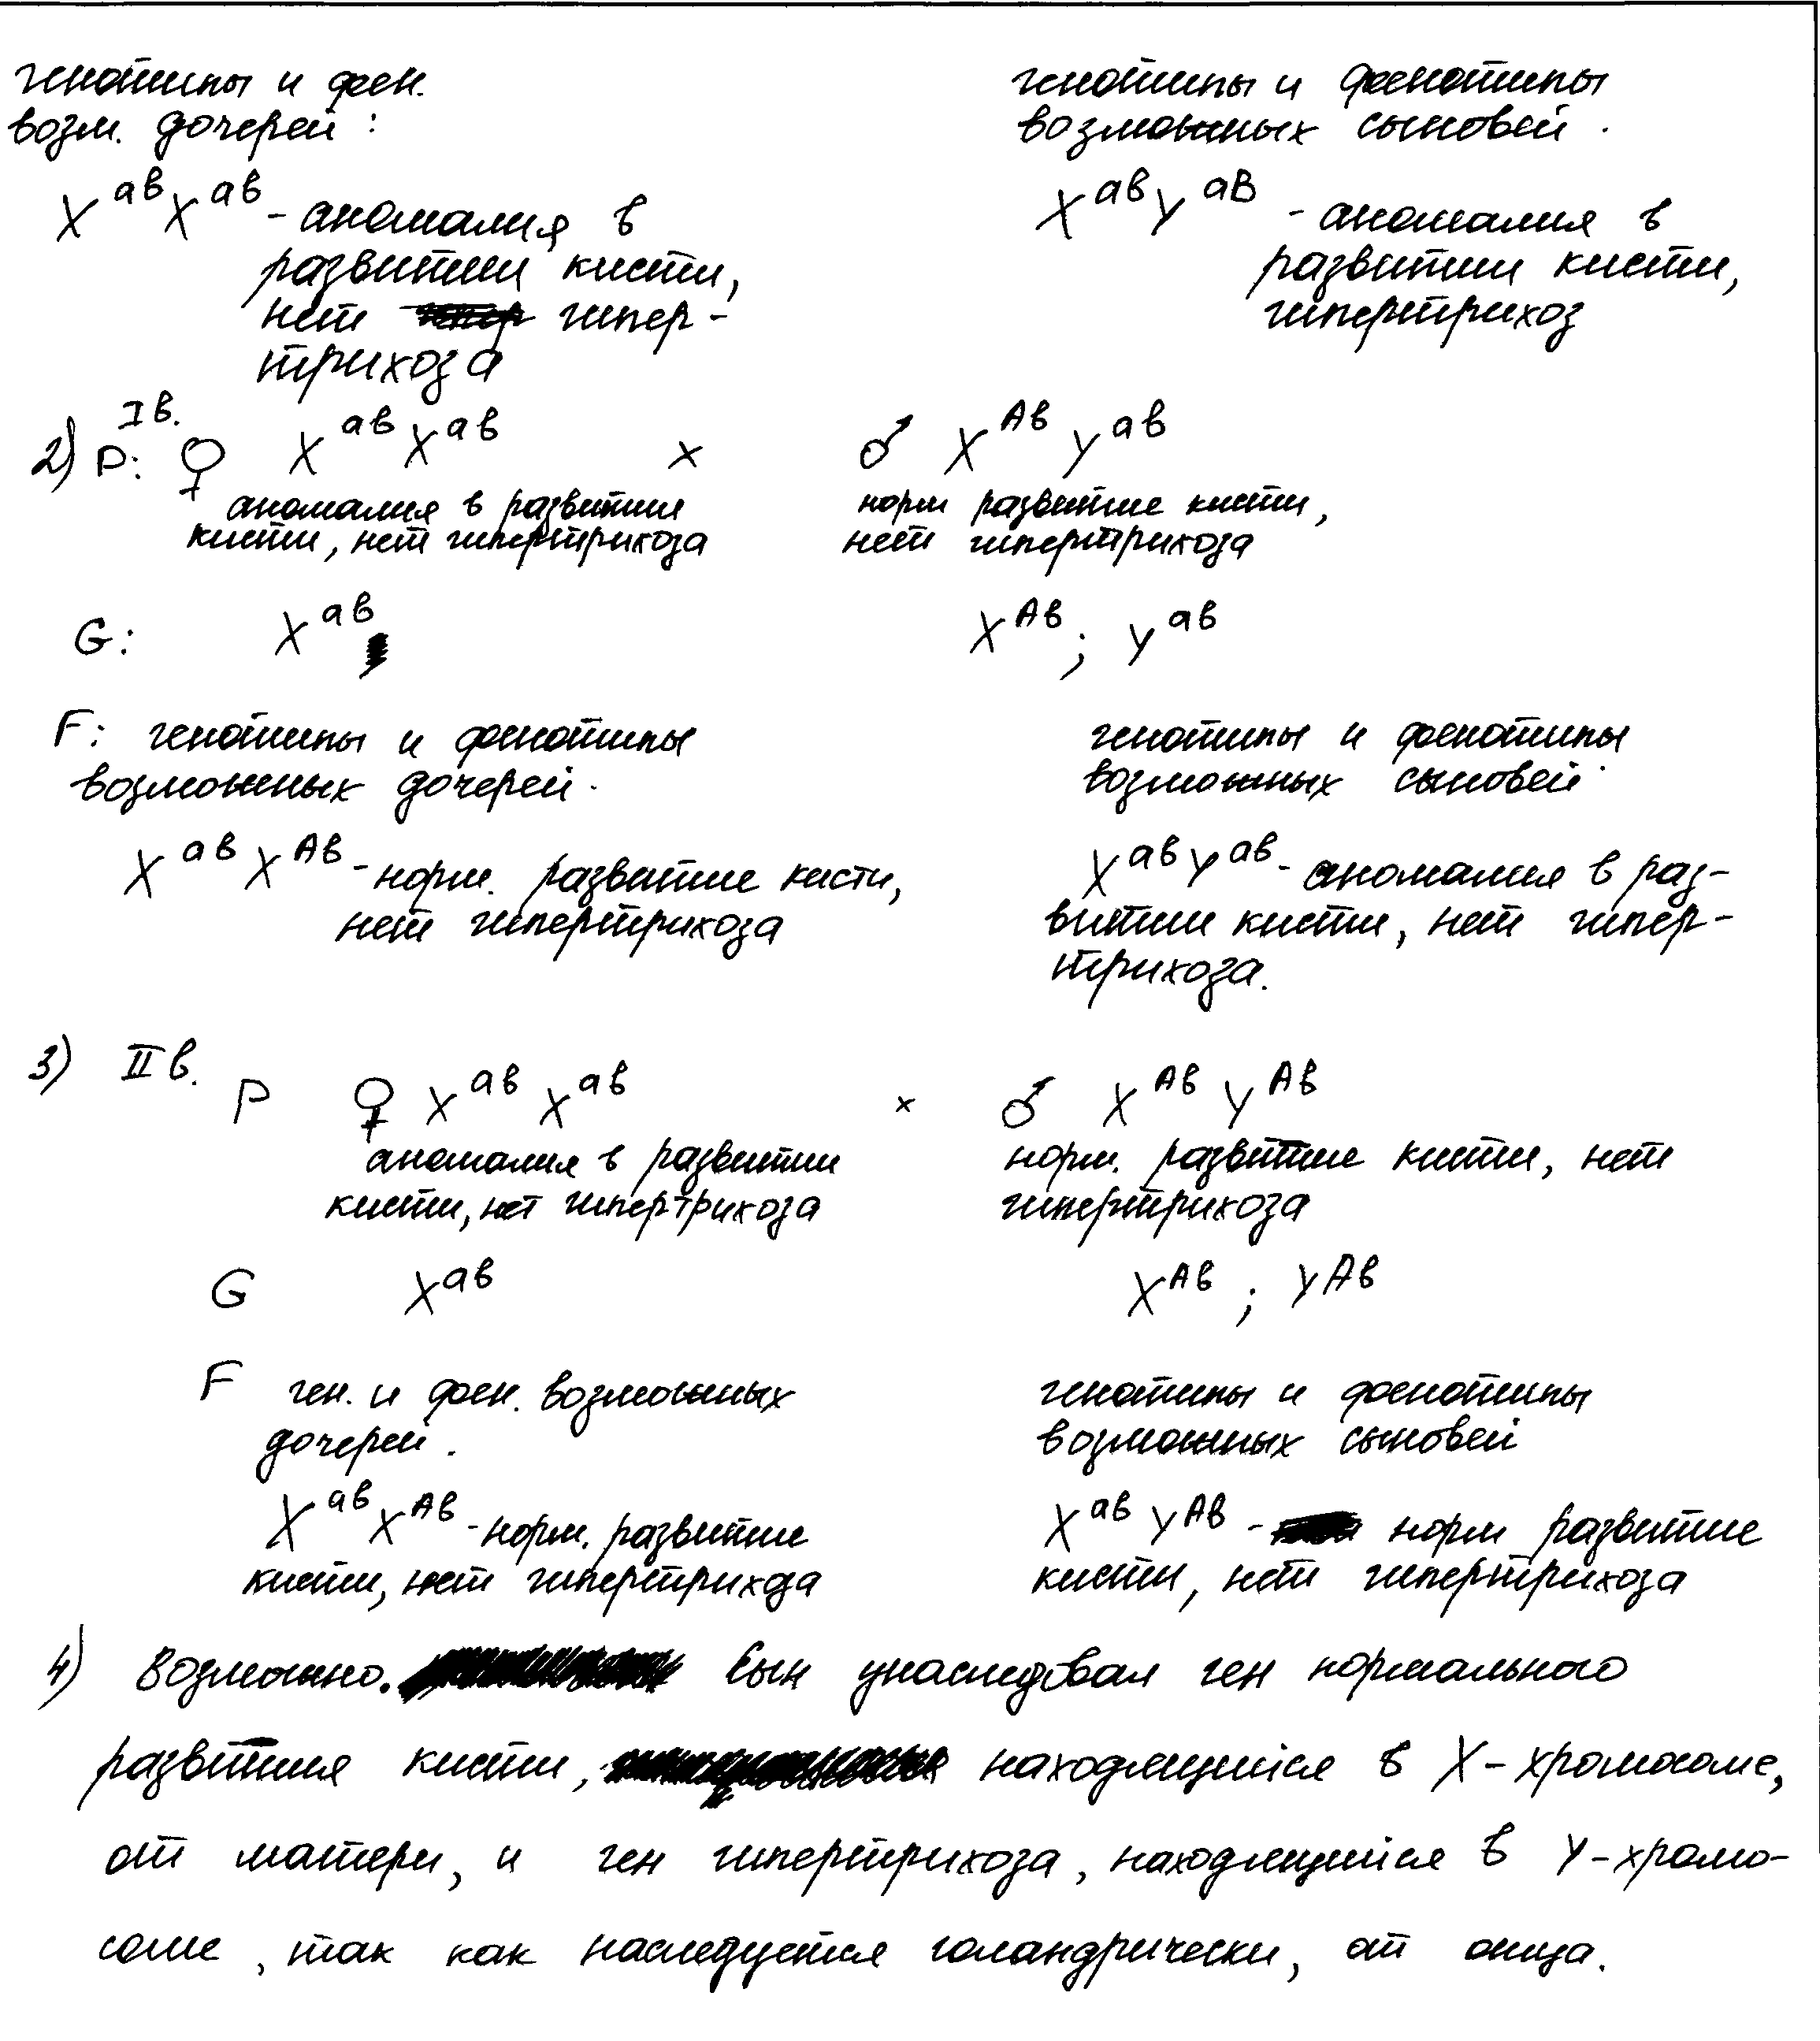 генотипы и фен.
возм. дочерей:
X^ав X^ав - аномалия в
развитии кисти,
нет гипер-
трихоза
генотипы и фенотипы
возможных сыновей.
X^ав Y^аВ - аномалия в
развитии кисти,
гипертрихоз
I в.
2) P: ♀ X^ав X^ав × ♂ X^Ав Y^ав
аномалия в развитии
кисти, нет гипертрихоза
норм развитие кисти,
нет гипертрихоза
G: X^ав X^Ав ; Y^ав
F: генотипы и фенотипы
возможных дочерей.
X^ав X^Ав - норм. развитие кисти,
нет гипертрихоза
генотипы и фенотипы
возможных сыновей.
X^ав Y^ав - аномалия в раз-
витии кисти, нет гипер-
трихоза.
3) II в. P ♀ X^ав X^ав × ♂ X^Ав Y^Ав
аномалия в развитии
кисти, нет гипертрихоза
норм. развитие кисти, нет
гипертрихоза
G X^ав X^Ав ; Y^Ав
F ген. и фен. возможных
дочерей.
X^ав X^Ав - норм. развитие
кисти, нет гипертрихда
генотипы и фенотипы
возможных сыновей
X^ав Y^Ав - норм развитие
кисти, нет гипертрихоза
4) Возможно. Сын унаследовал ген нормального
развития кисти, находящийся в X-хромосоме,
от матери, и ген гипертрихоза, находящийся в Y-хромо-
соме, так как наследуется голандрически, от отца.